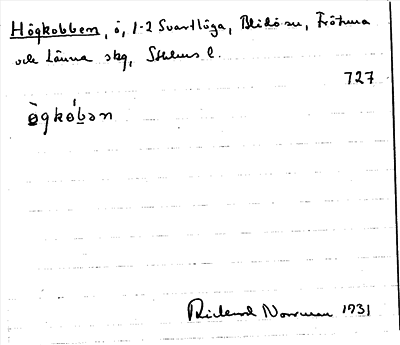 Högkobben, ö, 1-2 Svartlöga, Blidö sn, Frötuna
och Länna skg, Sthlms l.
727
ògkóbən
Rickard Norrman 1931